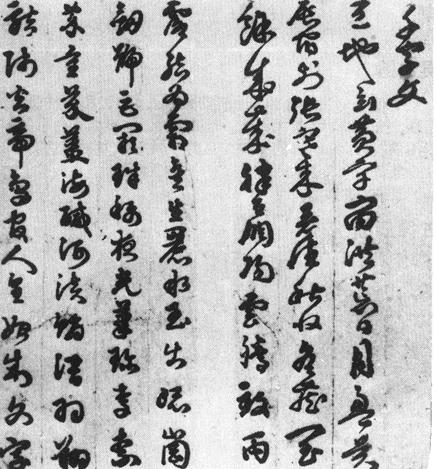 千字文
天地玄黃宇宙洪荒日月盈昃
辰宿列張寒來暑往秋收冬藏閏
餘成歲律呂調陽雲騰致雨
露結為霜金生麗水玉出崑崗
劍號巨闕珠稱夜光菓珍李柰
菜重芥薑海鹹河淡鱗潛羽翔
龍師火帝鳥官人皇始制文字